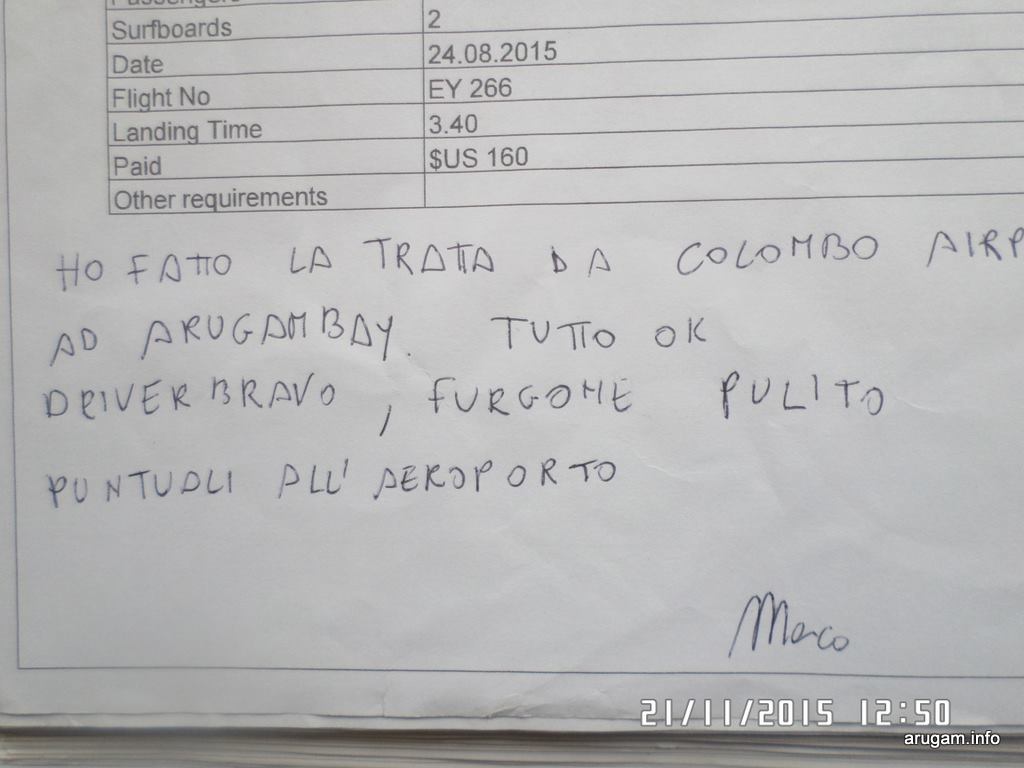 Surfboards 2
Date 24.08.2015
Flight No EY 266
Landing Time 3.40
Paid $US 160
Other requirements
HO FATTO LA TRATTA DA COLOMBO AIRP
AD ARUGAMBAY. TUTTO OK
DRIVER BRAVO, FURGONE PULITO
PUNTUALI ALL' AEROPORTO
Marco
21/11/2015 12:50
arugam.info